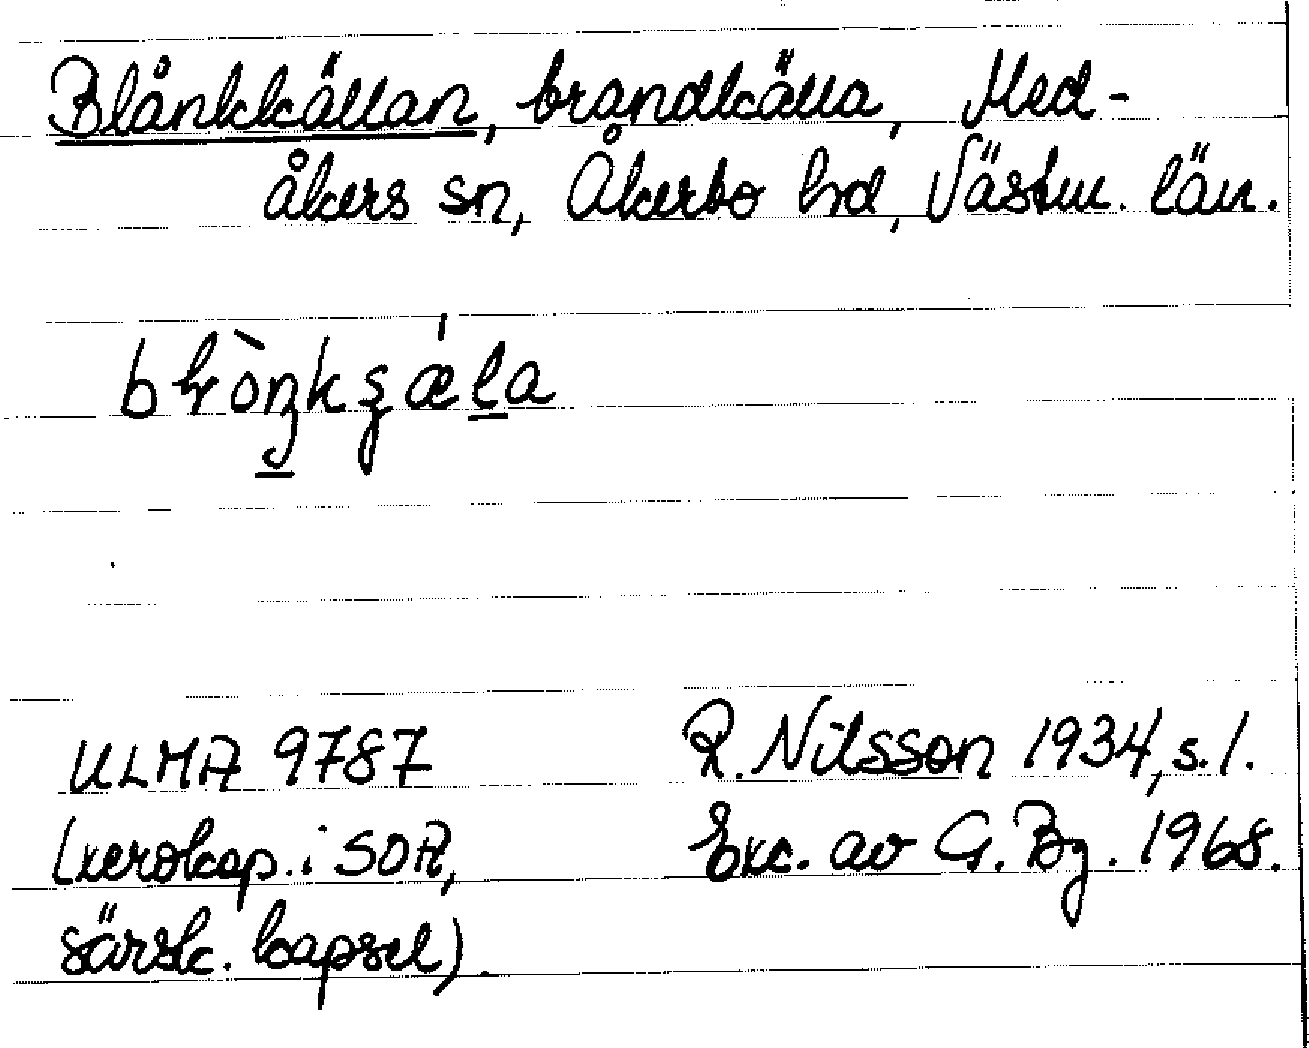 Blånkkällan, brandkälla, Med-
åkers sn, Åkerbo hd, Västm. län.
ULMA 9787
(xerokop. i SOA,
särsk. kapsel).
R. Nilsson 1934, s. 1.
Exc. av G. Bg. 1968.